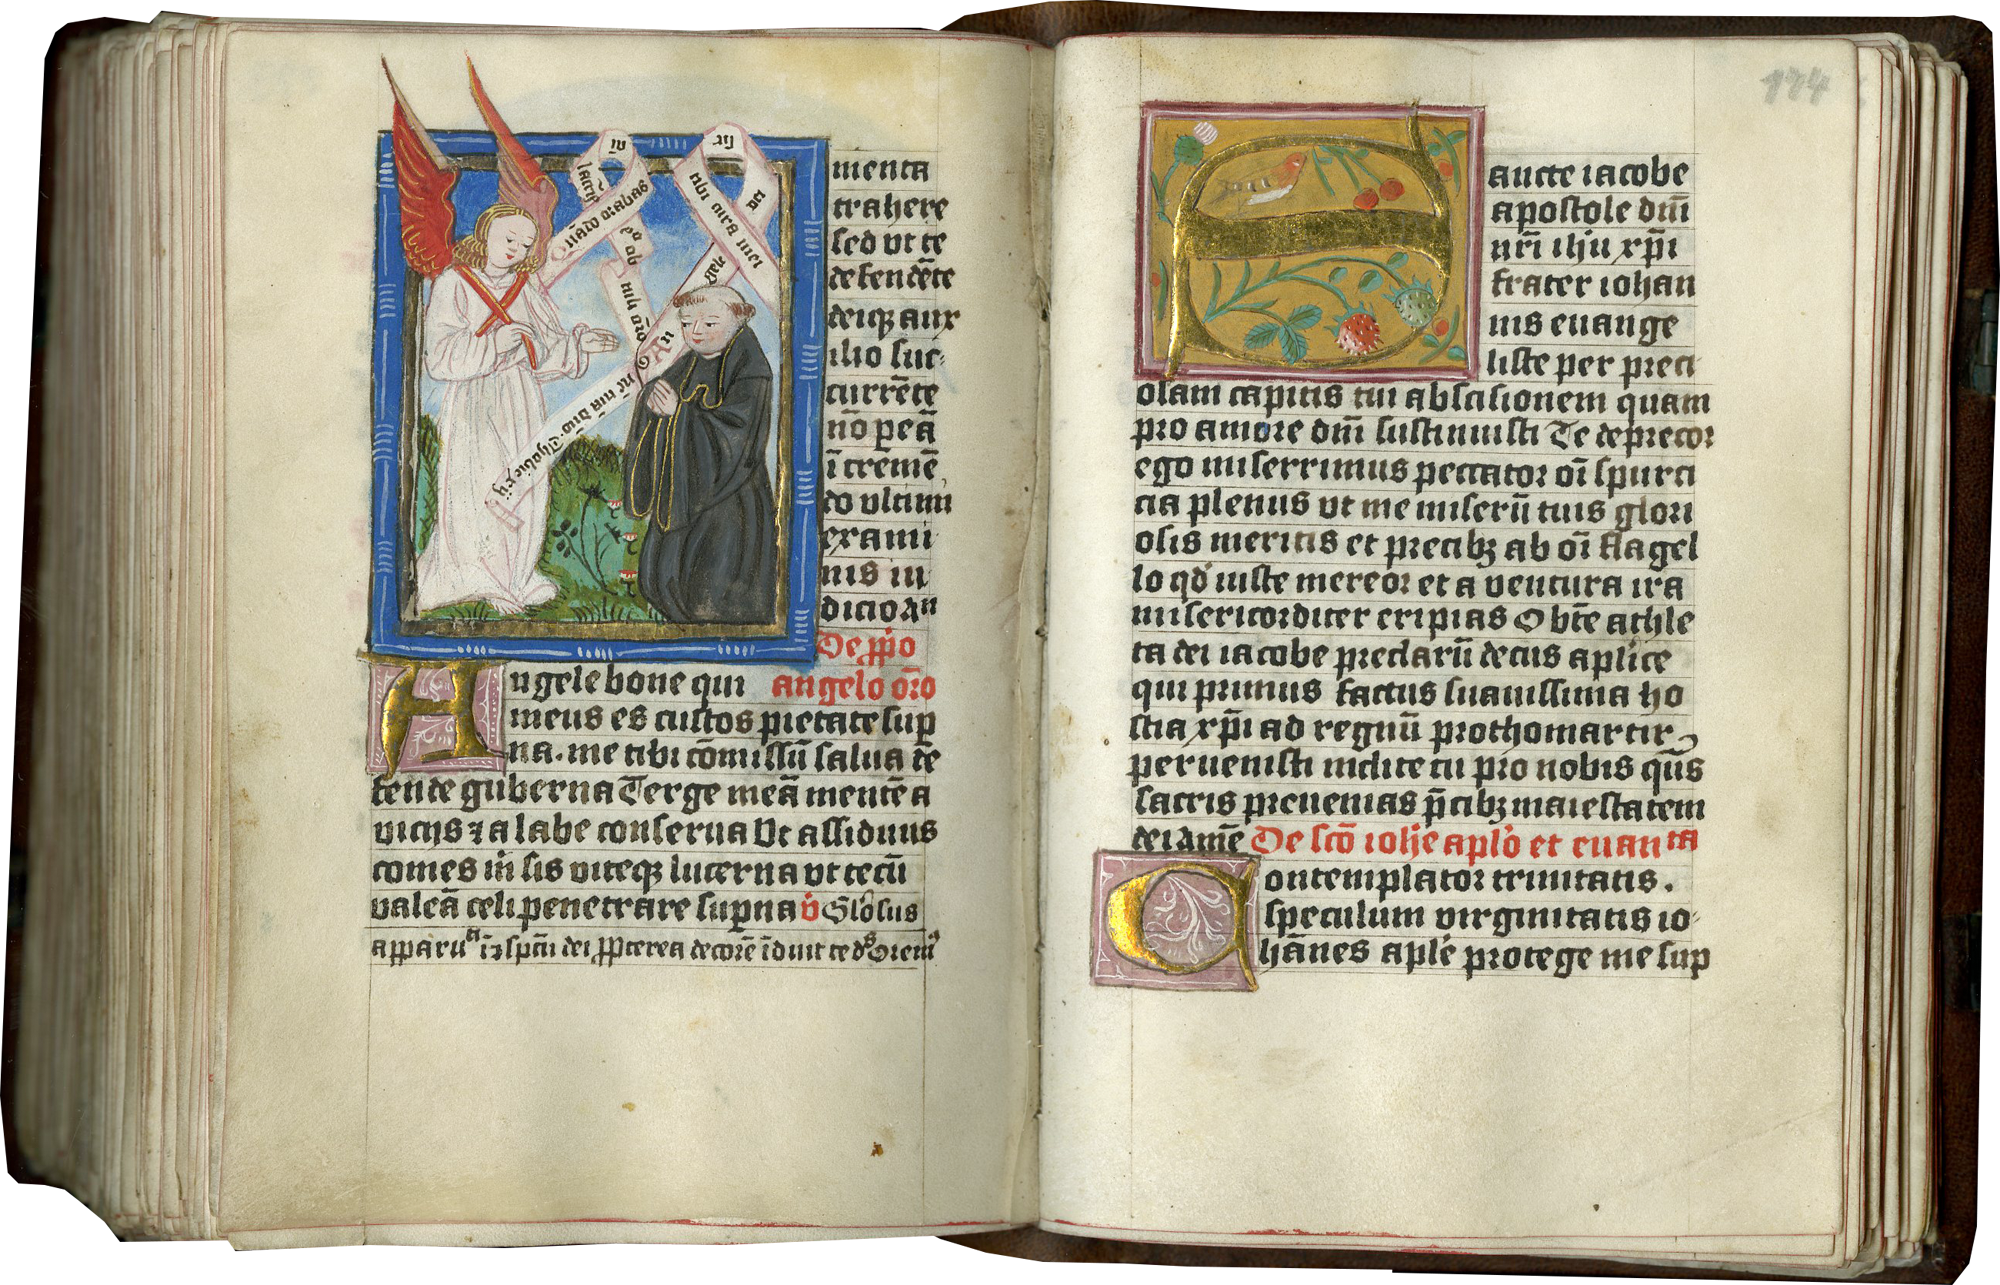 menta
trahere
sed vt te
defendēte
deiqꝫ aux
ilio suc
currēte
nō peā
ī tremē
do vltimi
exami
nis iu
dicio an
De ꝓpio
angelo oro
Angele bone qui
meus es custos pietate sup
na. me tibi cōmissū salua de
fende guberna Terge meā mentē a
vicijs ⁊ a labe conserua Vt assiduus
comes in sis viteqꝫ lucerna vt tecū
valeā celi penetrare supna v̇ Glosus
dei ꝓpterea decorē īduit te
174
Sancte iacobe
apostole dm̄i
nr̄i ihū xp̄i
frater iohan
nis euange
liste per preci
osam capitis tui abscisionem quam
pro amore dm̄i sustinuisti Te deprecor
ego miserrimus peccator oī spurci
cia plenus vt me miserū tuis glori
osis meritis et precibꝫ ab oī flagel
lo qd iuste mereor et a ventura ira
misericorditer eripias Obte athle
ta dei iacobe preclarū decus aplice
qui primus factus suauissima ho
stia xp̄i ad regnū prothomartir
peruenisti inclite tu pro nobis qs̄
sacris preuenias p̄cibꝫ maiestatem
dei Amē De scō iohe aplo et euanta
Contemplator trinitatis.
speculum virginitatis io
hānes aple protege me sup